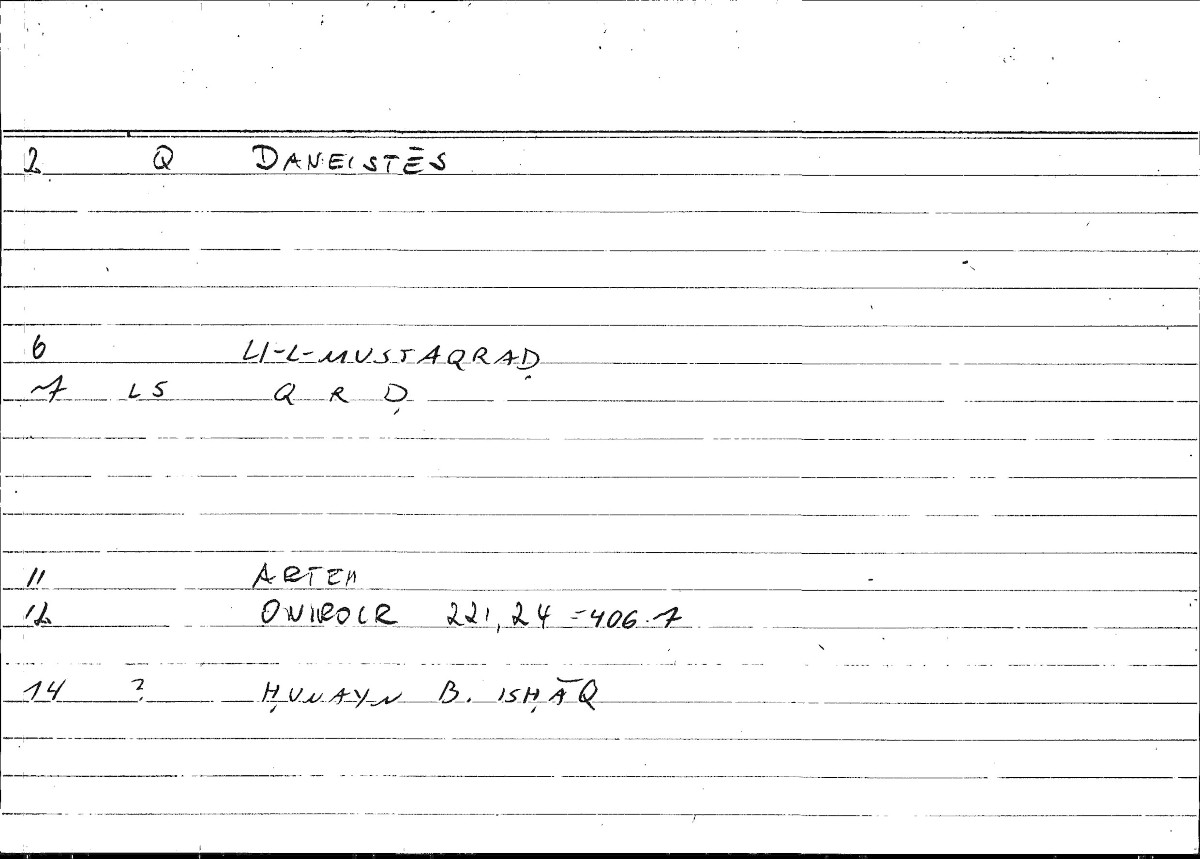 2 Q DANEISTĒS
6 LI-L-MUSTAQRAḌ
7 LS Q R Ḍ
11 ARTEM
12 ONIROCR 221,24 = 406.7
14 ? ḤUNAYN B. ISḤĀQ